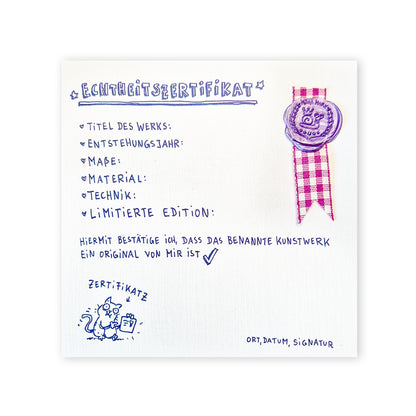 ECHTHEITSZERTIFIKAT
TITEL DES WERKS:
ENTSTEHUNGSJAHR:
MAßE:
MATERIAL:
TECHNIK:
LIMITIERTE EDITION:
HIERMIT BESTÄTIGE ICH, DASS DAS BENANNTE KUNSTWERK
EIN ORIGINAL VON MIR IST
ZERTIFIKATZ
ORT, DATUM, SIGNATUR